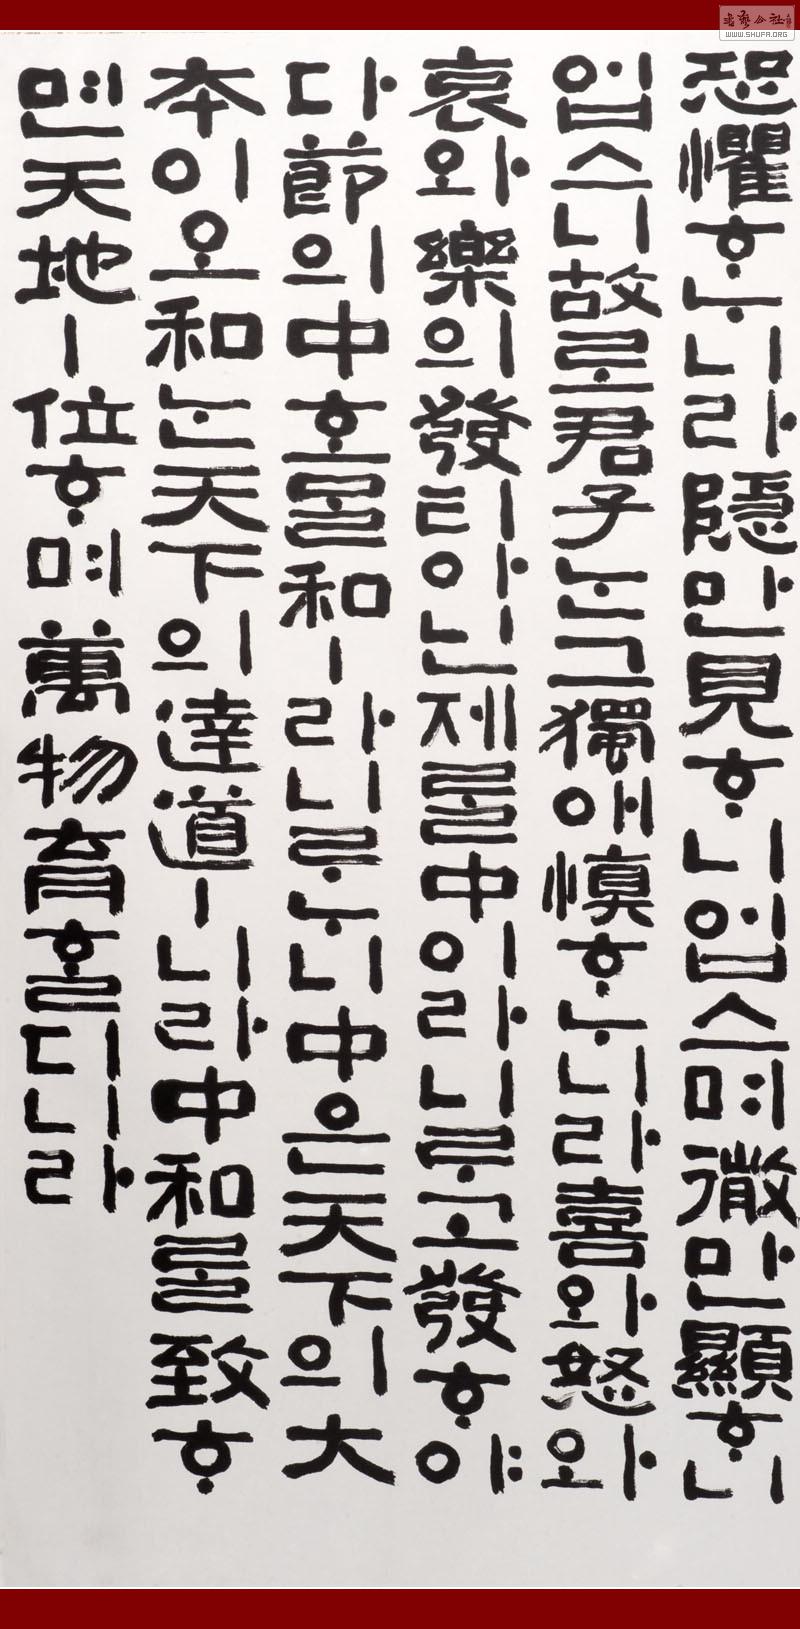 恐懼ᄒᆞᄂᆞ니라隱만見ᄒᆞ니업스며微만顯ᄒᆞ니
업스니故로君子ᄂᆞᆫ그獨애愼ᄒᆞᄂᆞ니라喜와怒와
哀와樂의發티아닌제ᄅᆞᆯ中이라니ᄅᆞ고發ᄒᆞ야
다節의中호ᄆᆞᆯ和ㅣ라니ᄅᆞᄂᆞ니中은天下의大
本이오和ᄂᆞᆫ天下의達道ㅣ니라中和ᄅᆞᆯ致ᄒᆞ
면天地ㅣ位ᄒᆞ며萬物育ᄒᆞᆯ디니라
WWW.SHUFA.ORG